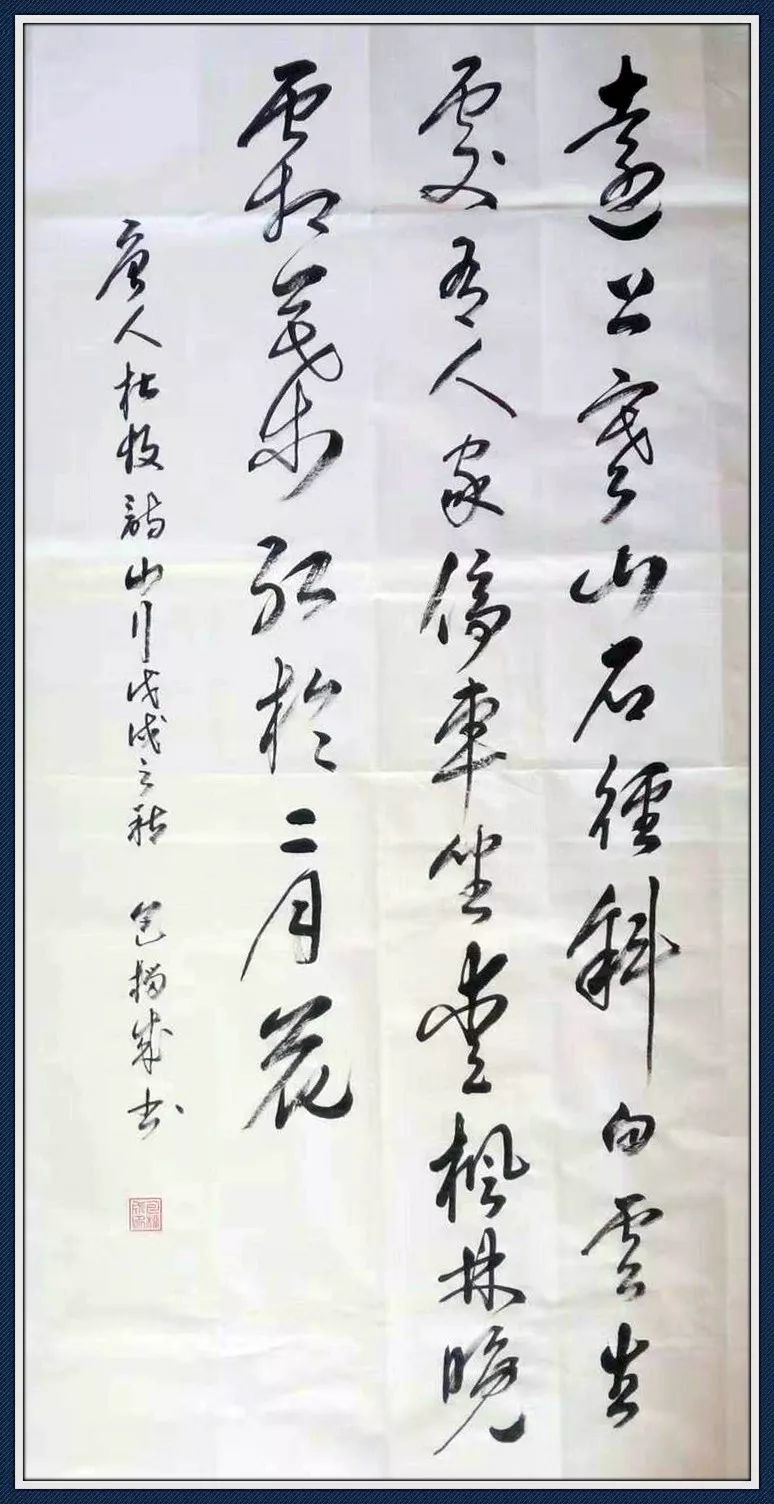 遠上寒山石徑斜白雲生
處有人家停車坐愛楓林晚
霜葉紅於二月花
唐人杜牧詩山行戊戌之秋 包成書